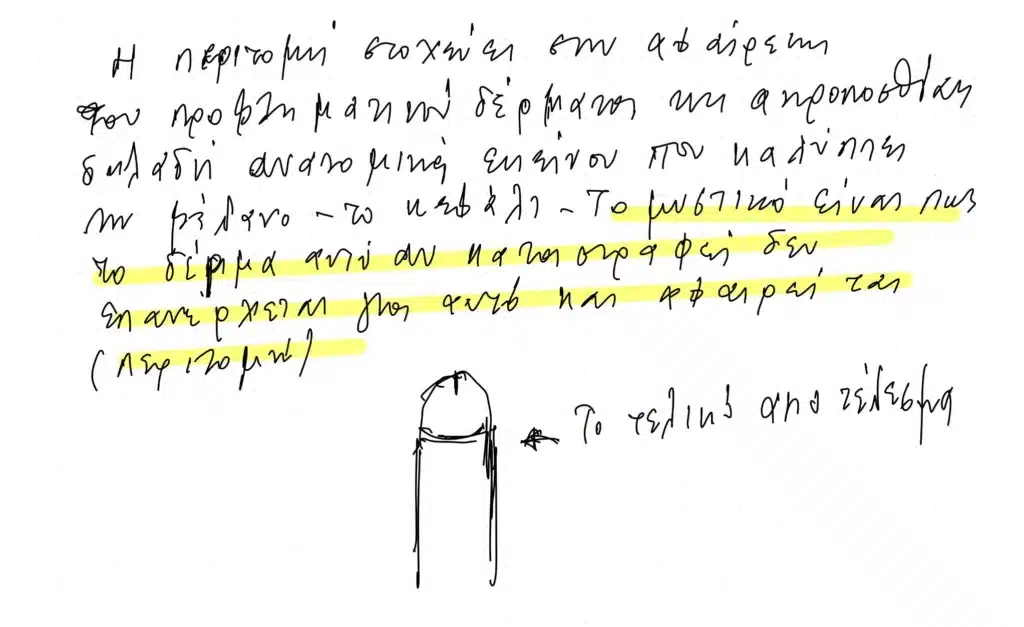 Η περιτομή στοχεύει στην αφαίρεση
του προβληματικού δέρματος της ακροποσθίας
δηλαδή ανατομικά εκείνου που καλύπτει
την βάλανο - το κεφάλι - Το μυστικό είναι πως
το δέρμα αυτό αν καταστραφεί δεν
επανέρχεται γιαυτό και αφαιρείται
(περιτομή)
Το τελικό αποτέλεσμα